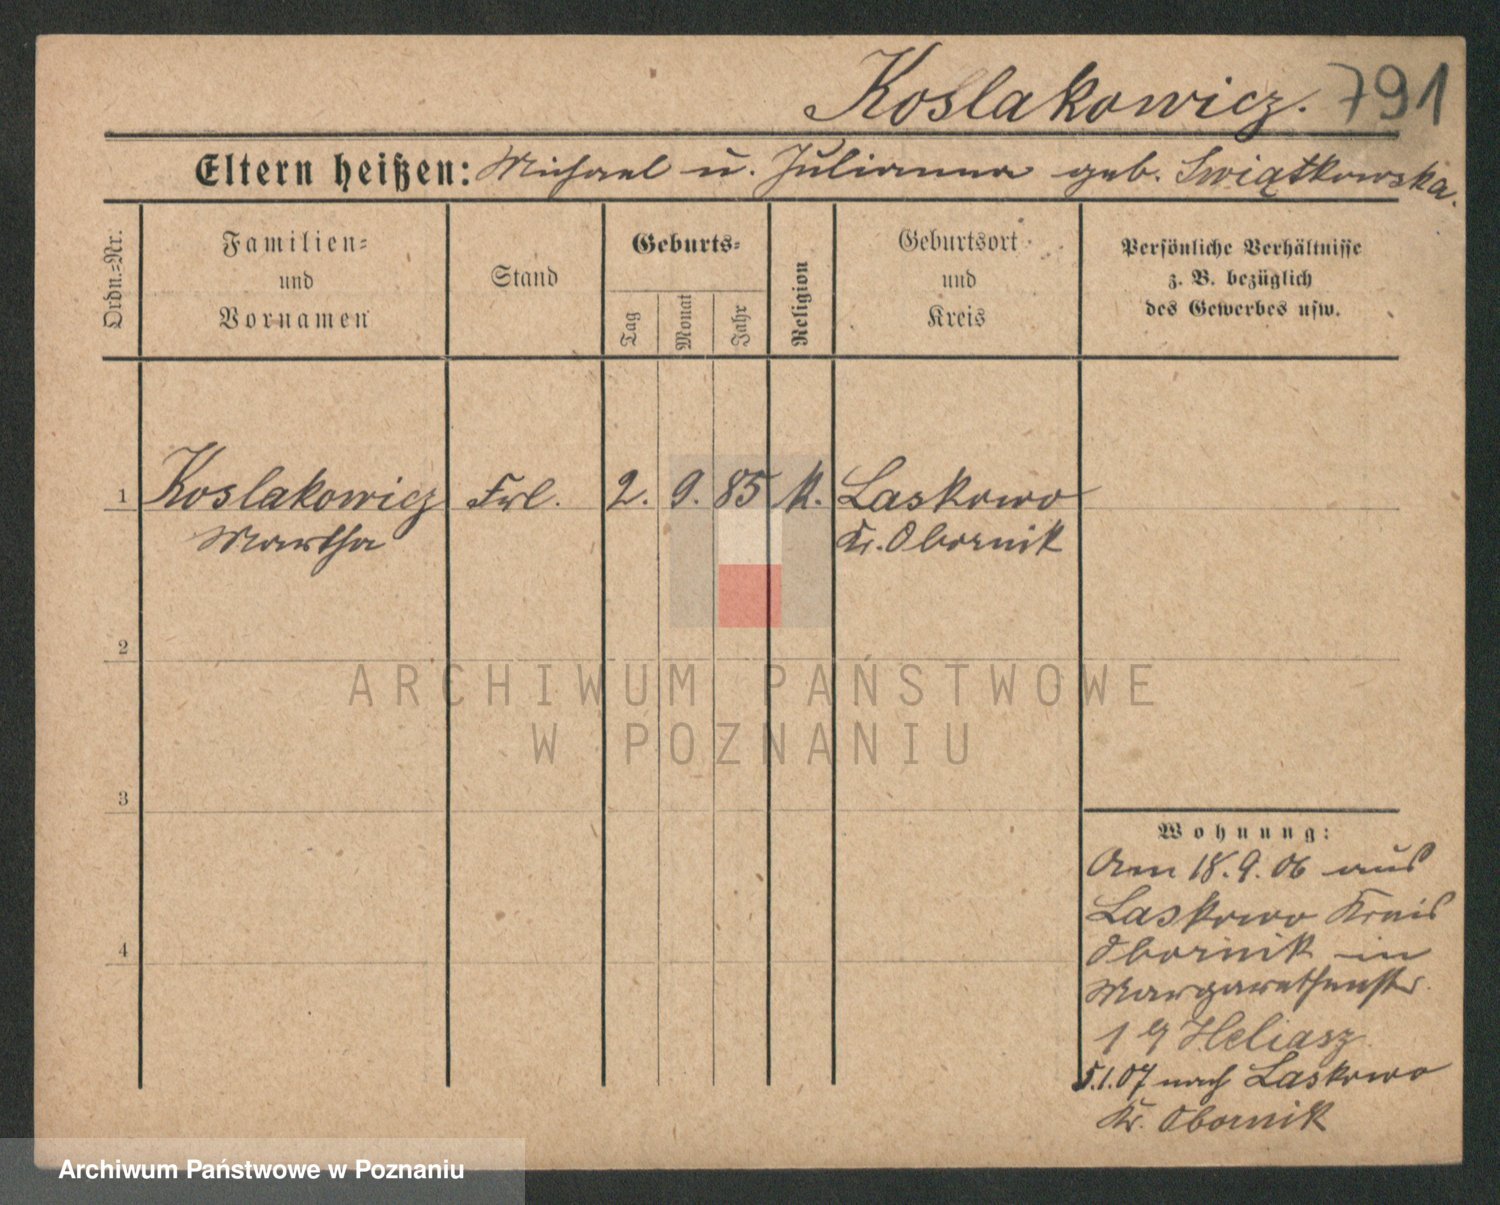 Koslakowicz. 791
Eltern heißen: Michael u. Julianna geb. Swiątkowska.
Ordn.=Nr.
Familien=
und
Vornamen
Stand
Geburts=
Tag
Monat
Jahr
Religion
Geburtsort
und
Kreis
Persönliche Verhältnisse
z. B. bezüglich
des Gewerbes usw.
1 Koslakowicz Frl. 2. 9. 85 k. Laskowo
Martha Kr. Obornik
2
ARCHIWUM PAŃSTWOWE
W POZNANIU
3
Wohnung:
Am 18.9.06 aus
Laskowo Kreis
4
Obornik in
Margarethenstr.
1 Heliasz
5.1.07 nach Laskowo
Kr. Obornik
Archiwum Państwowe w Poznaniu